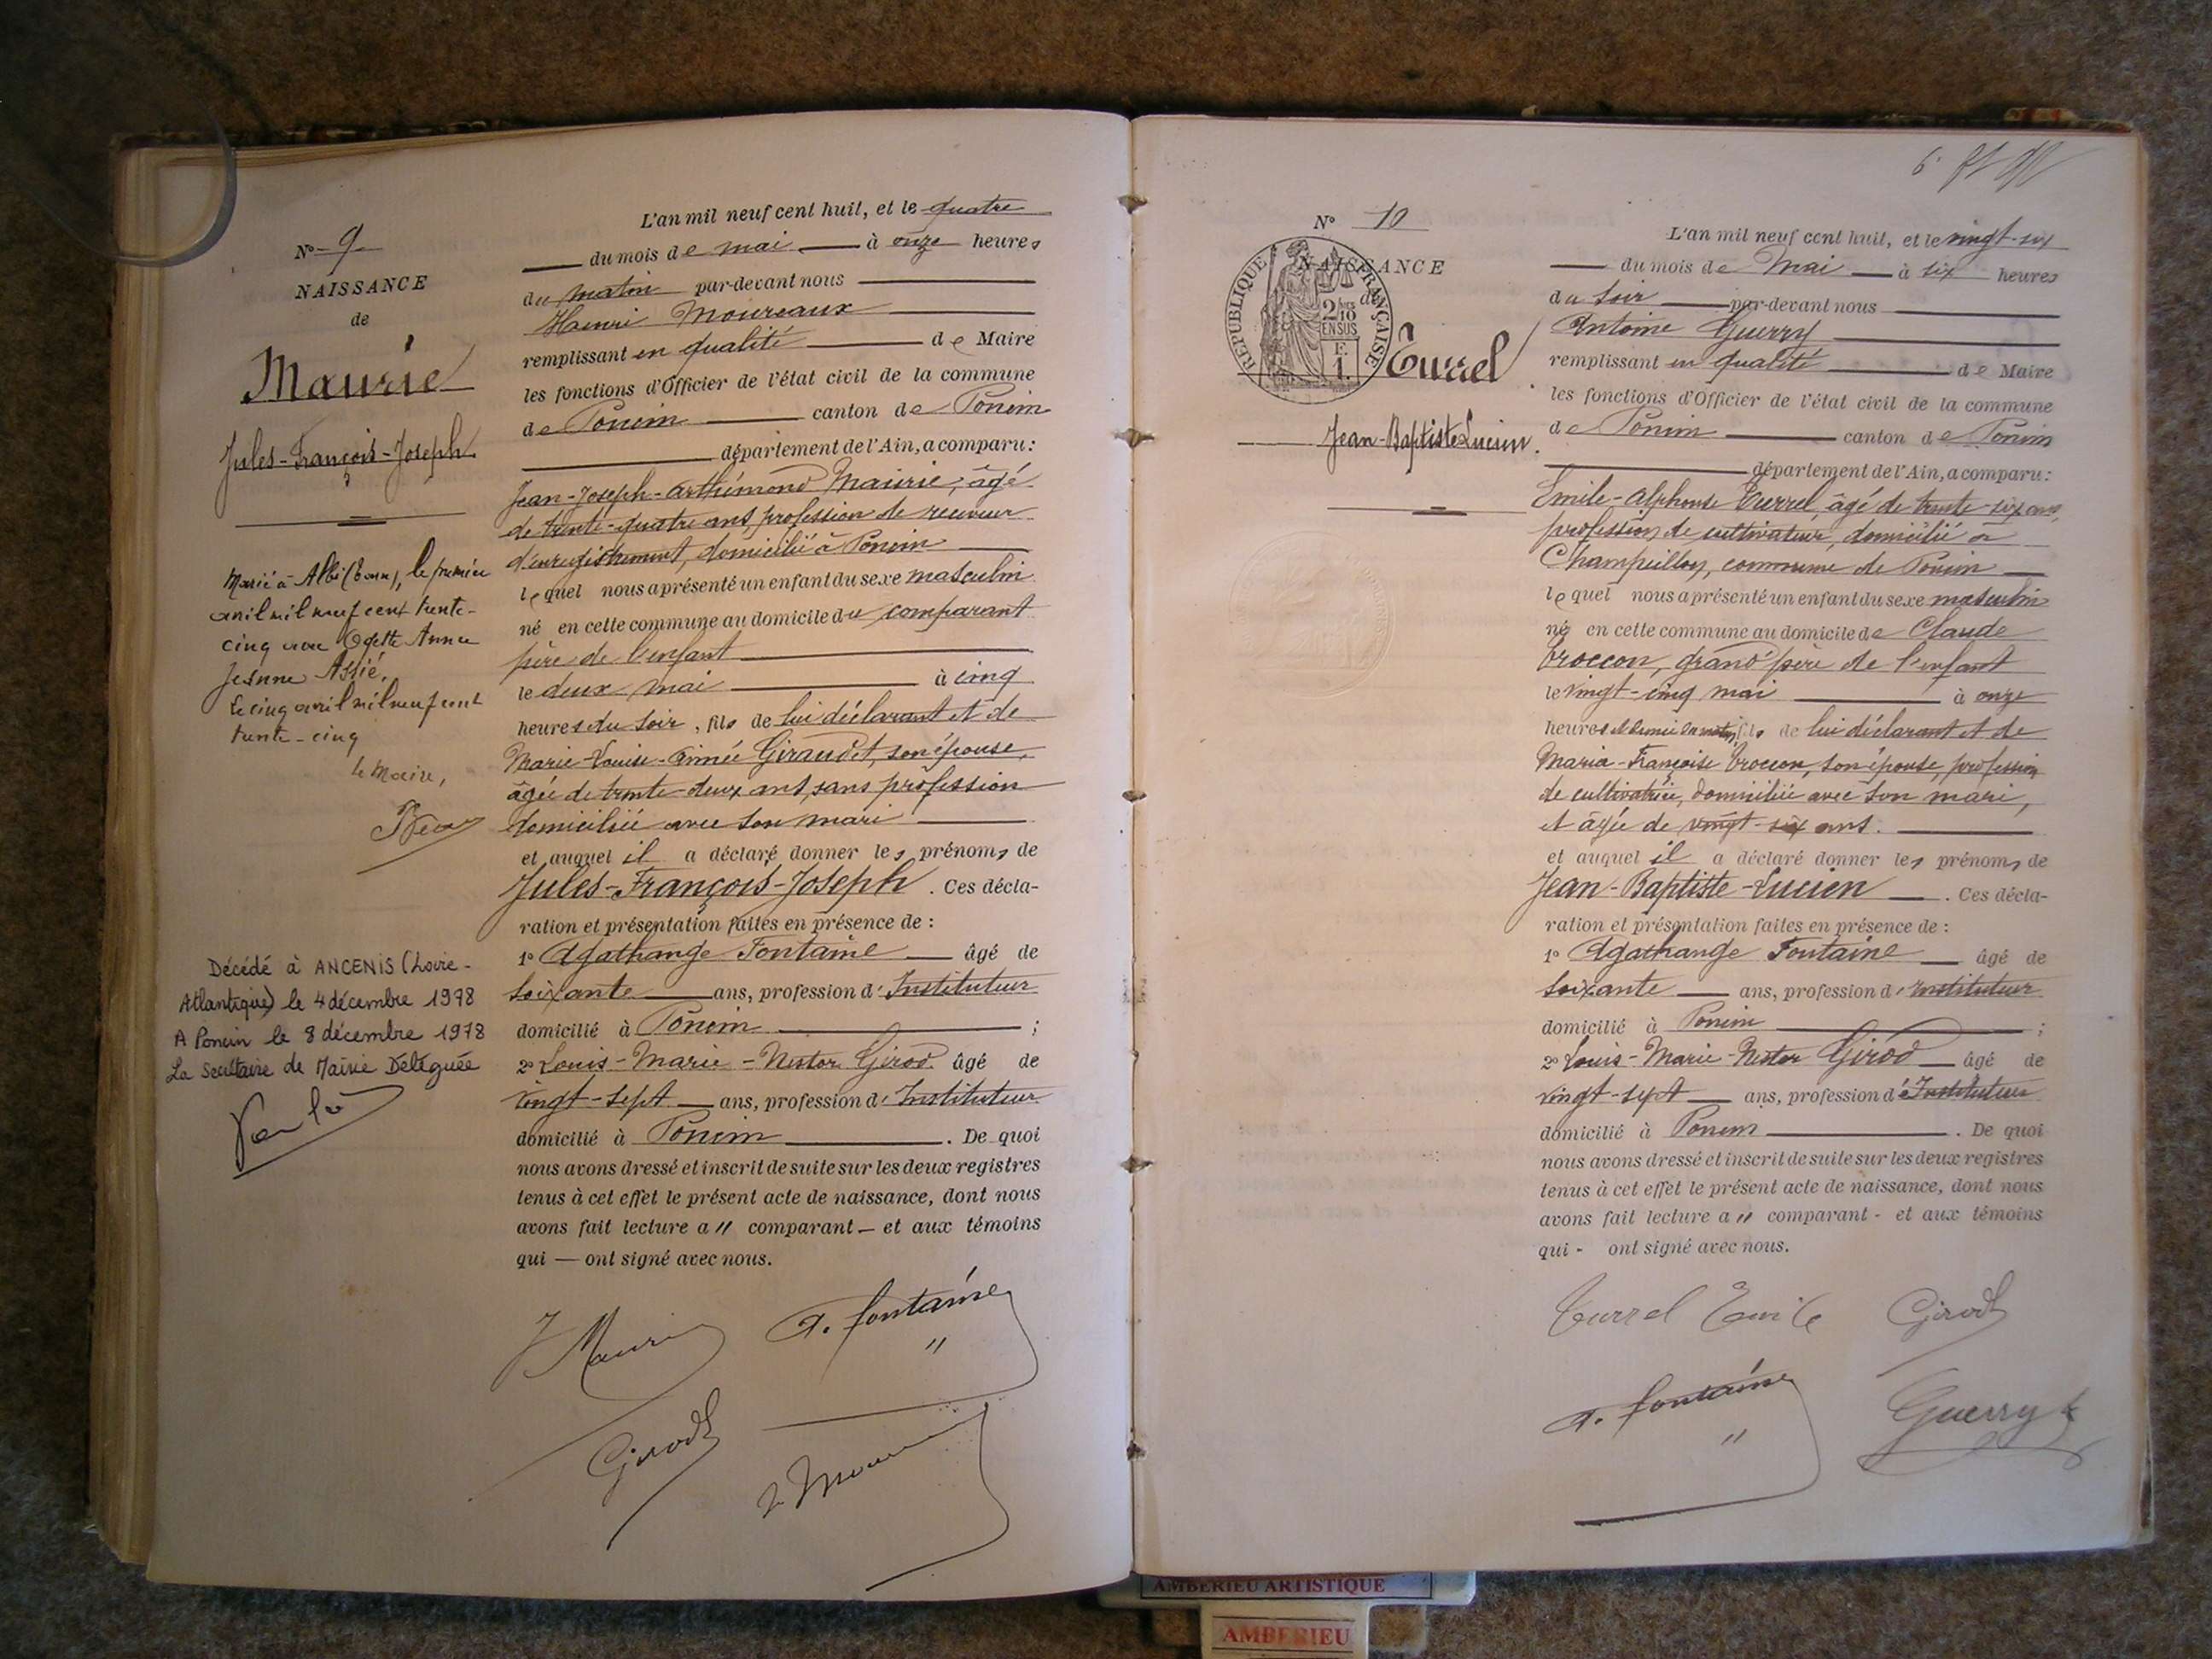 N° 9
NAISSANCE
de
Maurie
Jules-François-Joseph
Marié à Albi (Tarn), le premier
avril mil neuf cent trente-
cinq avec Odette Anna
Jeanne Assié.
Le cinq avril mil neuf cent
trente-cinq
Le Maire,
Décédé à ANCENIS (Loire-
Atlantique) le 4 décembre 1978
A Poncin le 8 décembre 1978
La Secrétaire de Mairie Déléguée
L'an mil neuf cent huit, et le quatre
du mois de mai à onze heures
du matin par-devant nous
Henri Moureaux
remplissant en qualité de Maire
les fonctions d'Officier de l'état civil de la commune
de Poncin canton de Poncin
département de l'Ain, a comparu :
Jean-Joseph-Arthémond Maurie, âgé
de trente-quatre ans, profession de receveur
d'enregistrement, domicilié à Poncin
lequel nous a présenté un enfant du sexe masculin
né en cette commune au domicile du comparant
père de l'enfant
le deux mai à cinq
heures du soir, fils de lui déclarant et de
Marie-Louise-Aimée Giraudet, son épouse,
âgée de trente-deux ans, sans profession
domiciliée avec son mari
et auquel il a déclaré donner les prénoms de
Jules-François-Joseph. Ces décla-
ration et présentation faites en présence de :
1° Agathange Fontaine âgé de
soixante ans, profession d'Instituteur
domicilié à Poncin ;
2° Louis-Marie-Nestor Girod âgé de
vingt-sept ans, profession d'Instituteur
domicilié à Poncin. De quoi
nous avons dressé et inscrit de suite sur les deux registres
tenus à cet effet le présent acte de naissance, dont nous
avons fait lecture a " comparant — et aux témoins
qui — ont signé avec nous.
J Maurie A. fontaine
Girod
N° 10
NAISSANCE
de
RÉPUBLIQUE FRANÇAISE
2/10
EN SUS
Turrel
Jean-Baptiste Lucien.
L'an mil neuf cent huit, et le vingt-six
du mois de Mai à six heures
du soir par-devant nous
Antoine Guerry
remplissant en qualité de Maire
les fonctions d'Officier de l'état civil de la commune
de Poncin canton de Poncin
département de l'Ain, a comparu :
Emile-Alphonse Turrel, âgé de trente-six ans,
profession de cultivateur, domicilié à
Champeillon, commune de Poncin
lequel nous a présenté un enfant du sexe masculin
né en cette commune au domicile de Claude
Troccon, grand'père de l'enfant
le vingt-cinq mai à onze
heures et demie du matin, fils de lui déclarant et de
Maria-Françoise Troccon, son épouse, profession
de cultivatrice, domiciliée avec son mari,
et âgée de vingt-six ans.
et auquel il a déclaré donner les prénoms de
Jean-Baptiste-Lucien. Ces décla-
ration et présentation faites en présence de :
1° Agathange Fontaine âgé de
soixante ans, profession d'Instituteur
domicilié à Poncin ;
2° Louis-Marie-Nestor Girod âgé de
vingt-sept ans, profession d'Instituteur
domicilié à Poncin. De quoi
nous avons dressé et inscrit de suite sur les deux registres
tenus à cet effet le présent acte de naissance, dont nous
avons fait lecture a " comparant - et aux témoins
qui - ont signé avec nous.
Turrel Emile Girod
A. fontaine Guerry
AMBERIEU ARTISTIQUE
AMBERIEU